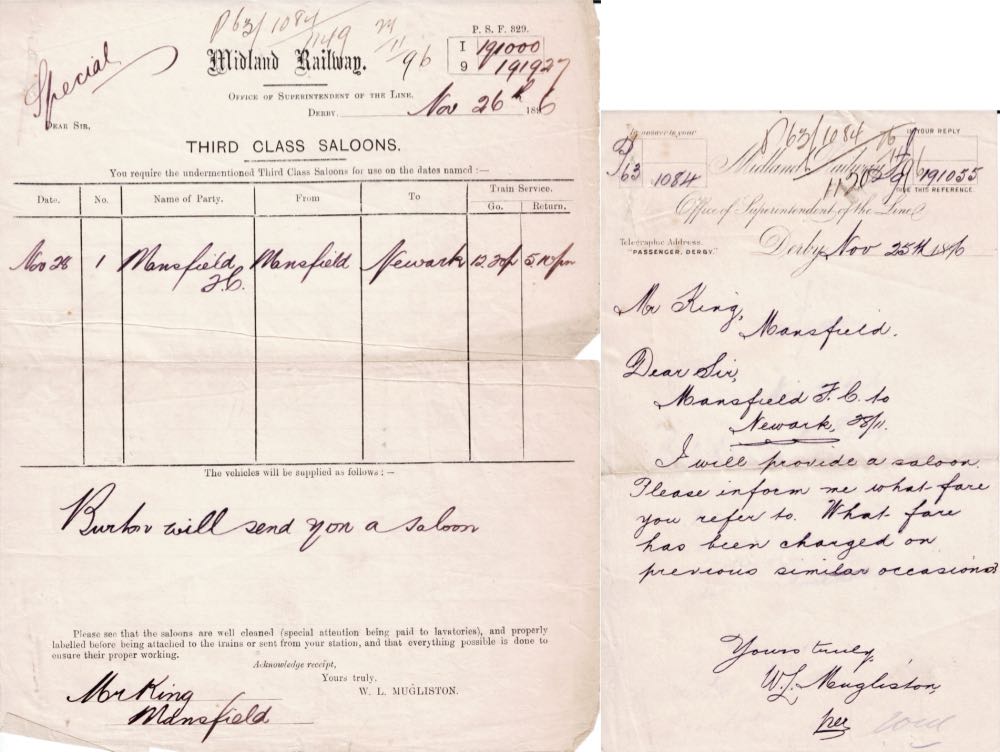 P 63/1084
1149
24/11/96
P. S. F. 329.
I 191000
9 191927
Special
Midland Railway.
OFFICE OF SUPERINTENDENT OF THE LINE,
DERBY, Nov 26th 1896
DEAR SIR,
THIRD CLASS SALOONS.
You require the undermentioned Third Class Saloons for use on the dates named :—
Date. No. Name of Party. From To Train Service.
Go. Return.
Nov 28 1 Mansfield Mansfield Newark 12.30p 5.10pm
F.C.
The vehicles will be supplied as follows : —
Burton will send you a saloon
Please see that the saloons are well cleaned (special attention being paid to lavatories), and properly
labelled before being attached to the trains or sent from your station, and that everything possible is done to
ensure their proper working.
Acknowledge receipt,
Yours truly.
W. L. MUGLISTON.
Mr King
Mansfield
In answer to your
P 63/1084
IN YOUR REPLY
63 1084
Midland Railway
191055
GIVE THIS REFERENCE
Office of Superintendent of the Line
Telegraphic Address.
"PASSENGER, DERBY."
Derby Nov 25th 1896
Mr King,
Mansfield.
Dear Sir,
Mansfield F.C. to
Newark, 28/11.
I will provide a saloon.
Please inform me what fare
you refer to. What fare
has been charged on
previous similar occasions?
Yours truly,
W.L. Mugliston
per